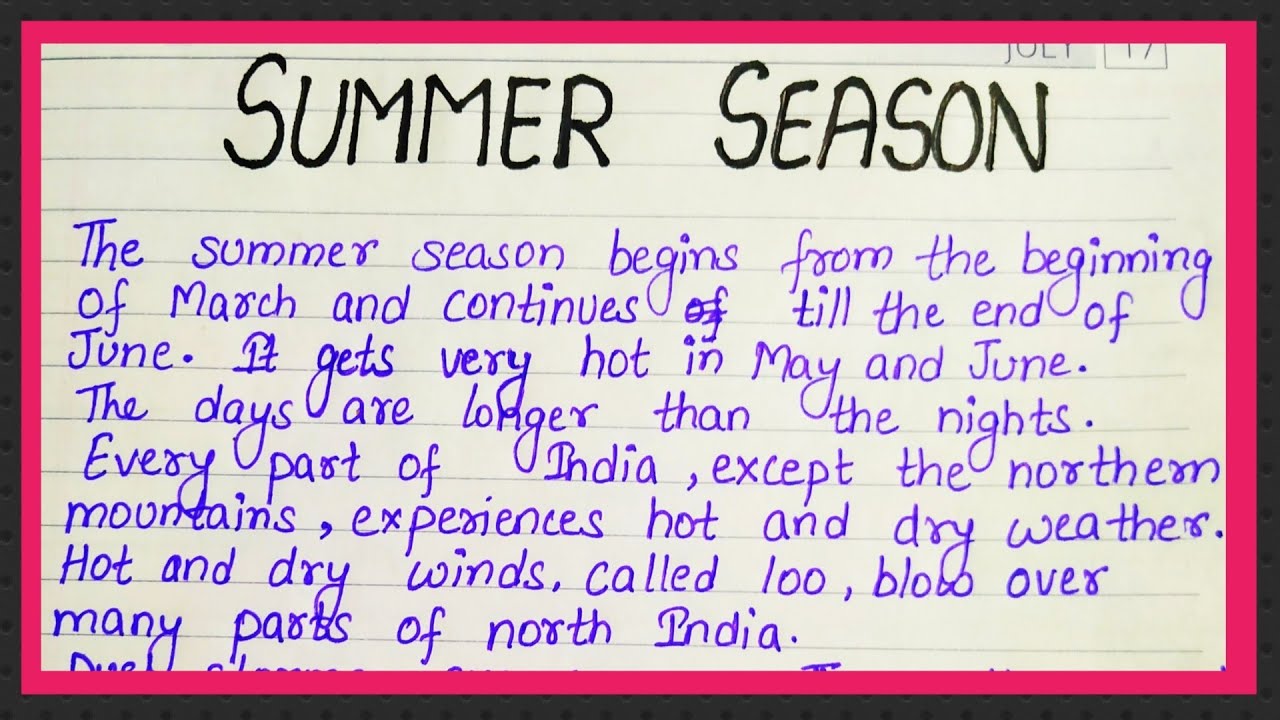 JULY 17
SUMMER SEASON
The summer season begins from the beginning
of March and continues of till the end of
June. It gets very hot in May and June.
The days are longer than the nights.
Every part of India, except the northern
mountains, experiences hot and dry weather.
Hot and dry winds, called loo, blow over
many parts of north India.